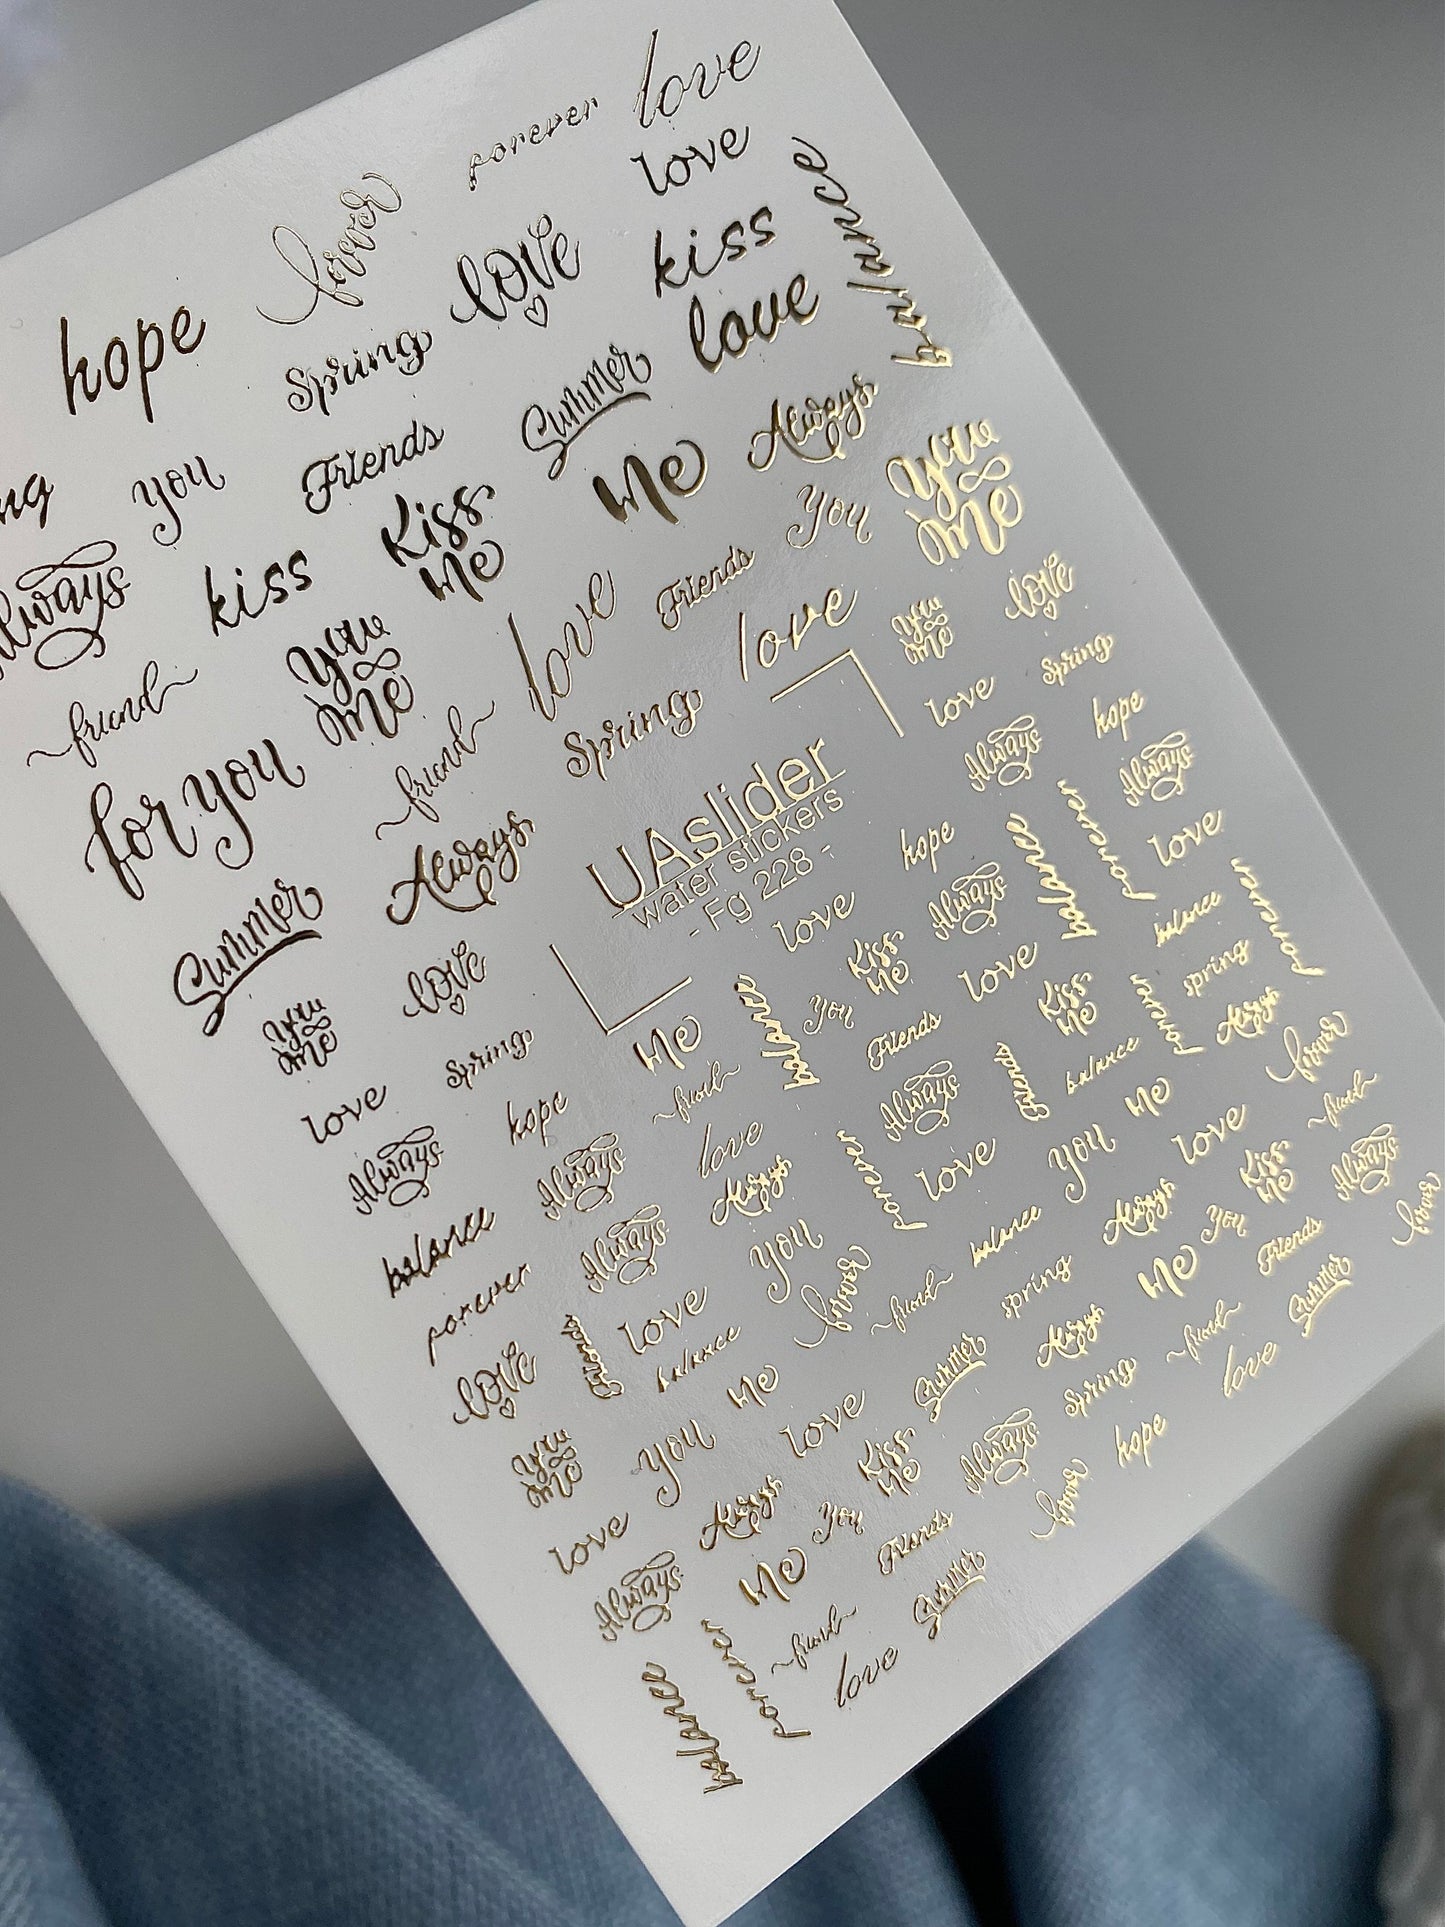 love
forever
love
forever
love
kiss
balance
hope
Spring
love
Summer
Always
you
Friends
Me
you
me
Kiss
Me
you
Always
kiss
love
Friends
love
you
me
love
friend
you
me
Spring
love
Spring
hope
for you
friend
Always
Always
UAslider
water stickers
- Fg 228 -
Always
hope
balance
forever
love
Summer
love
love
Kiss
Me
Always
balance
forever
you
me
Spring
Me
balance
you
Friends
love
Kiss
Me
forever
spring
Always
love
hope
friend
Always
Friends
balance
Me
forever
Always
Always
love
Always
forever
love
you
love
Kiss
Me
friend
balance
Always
you
balance
Always
you
Always
forever
forever
love
forever
friend
spring
Me
Friends
love
Friends
balance
Me
Summer
Always
friend
Summer
you
me
you
love
Kiss
Me
Always
Spring
love
love
Always
you
Friends
forever
hope
Always
Me
Summer
balance
forever
friend
love